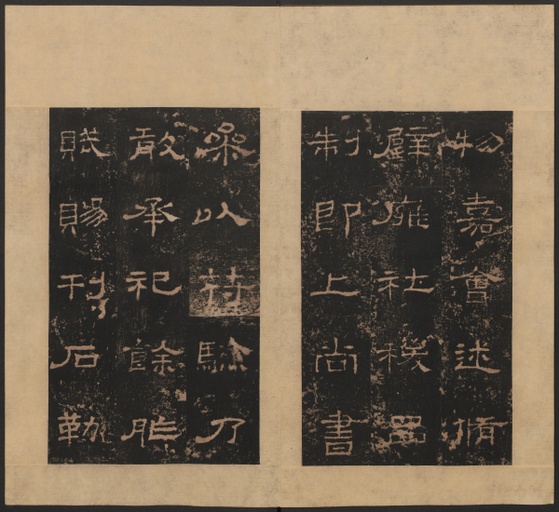 物嘉會述脩
辟廱社稷品
制即上尚書
參以苻驗乃
敢承祀餘胙
賦賜刊石勒